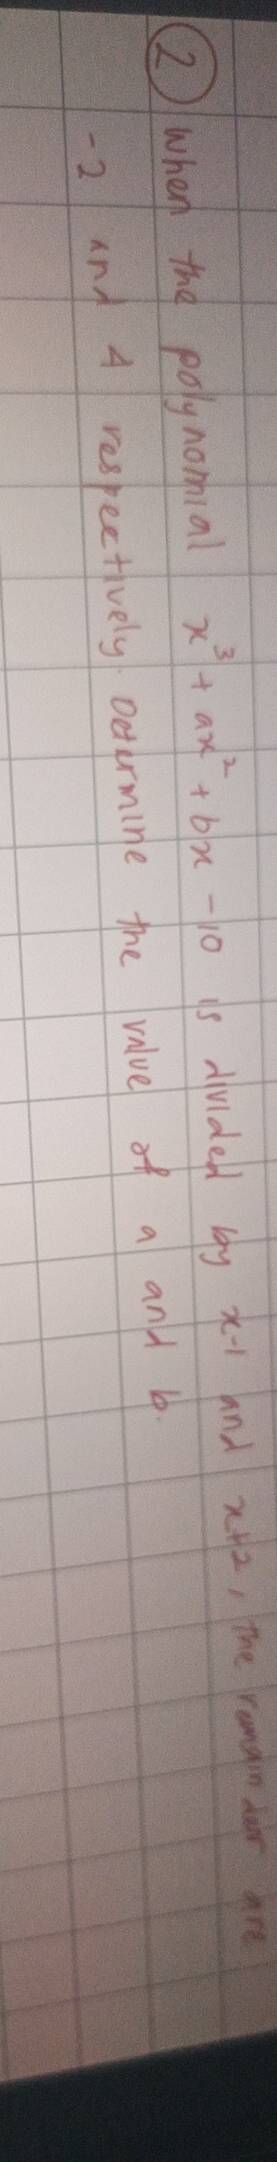 2 When the polynomial x³ + ax² + bx - 10 is divided by x-1 and x+2, the remainder are
-2 and 4 respectively. Determine the value of a and b.